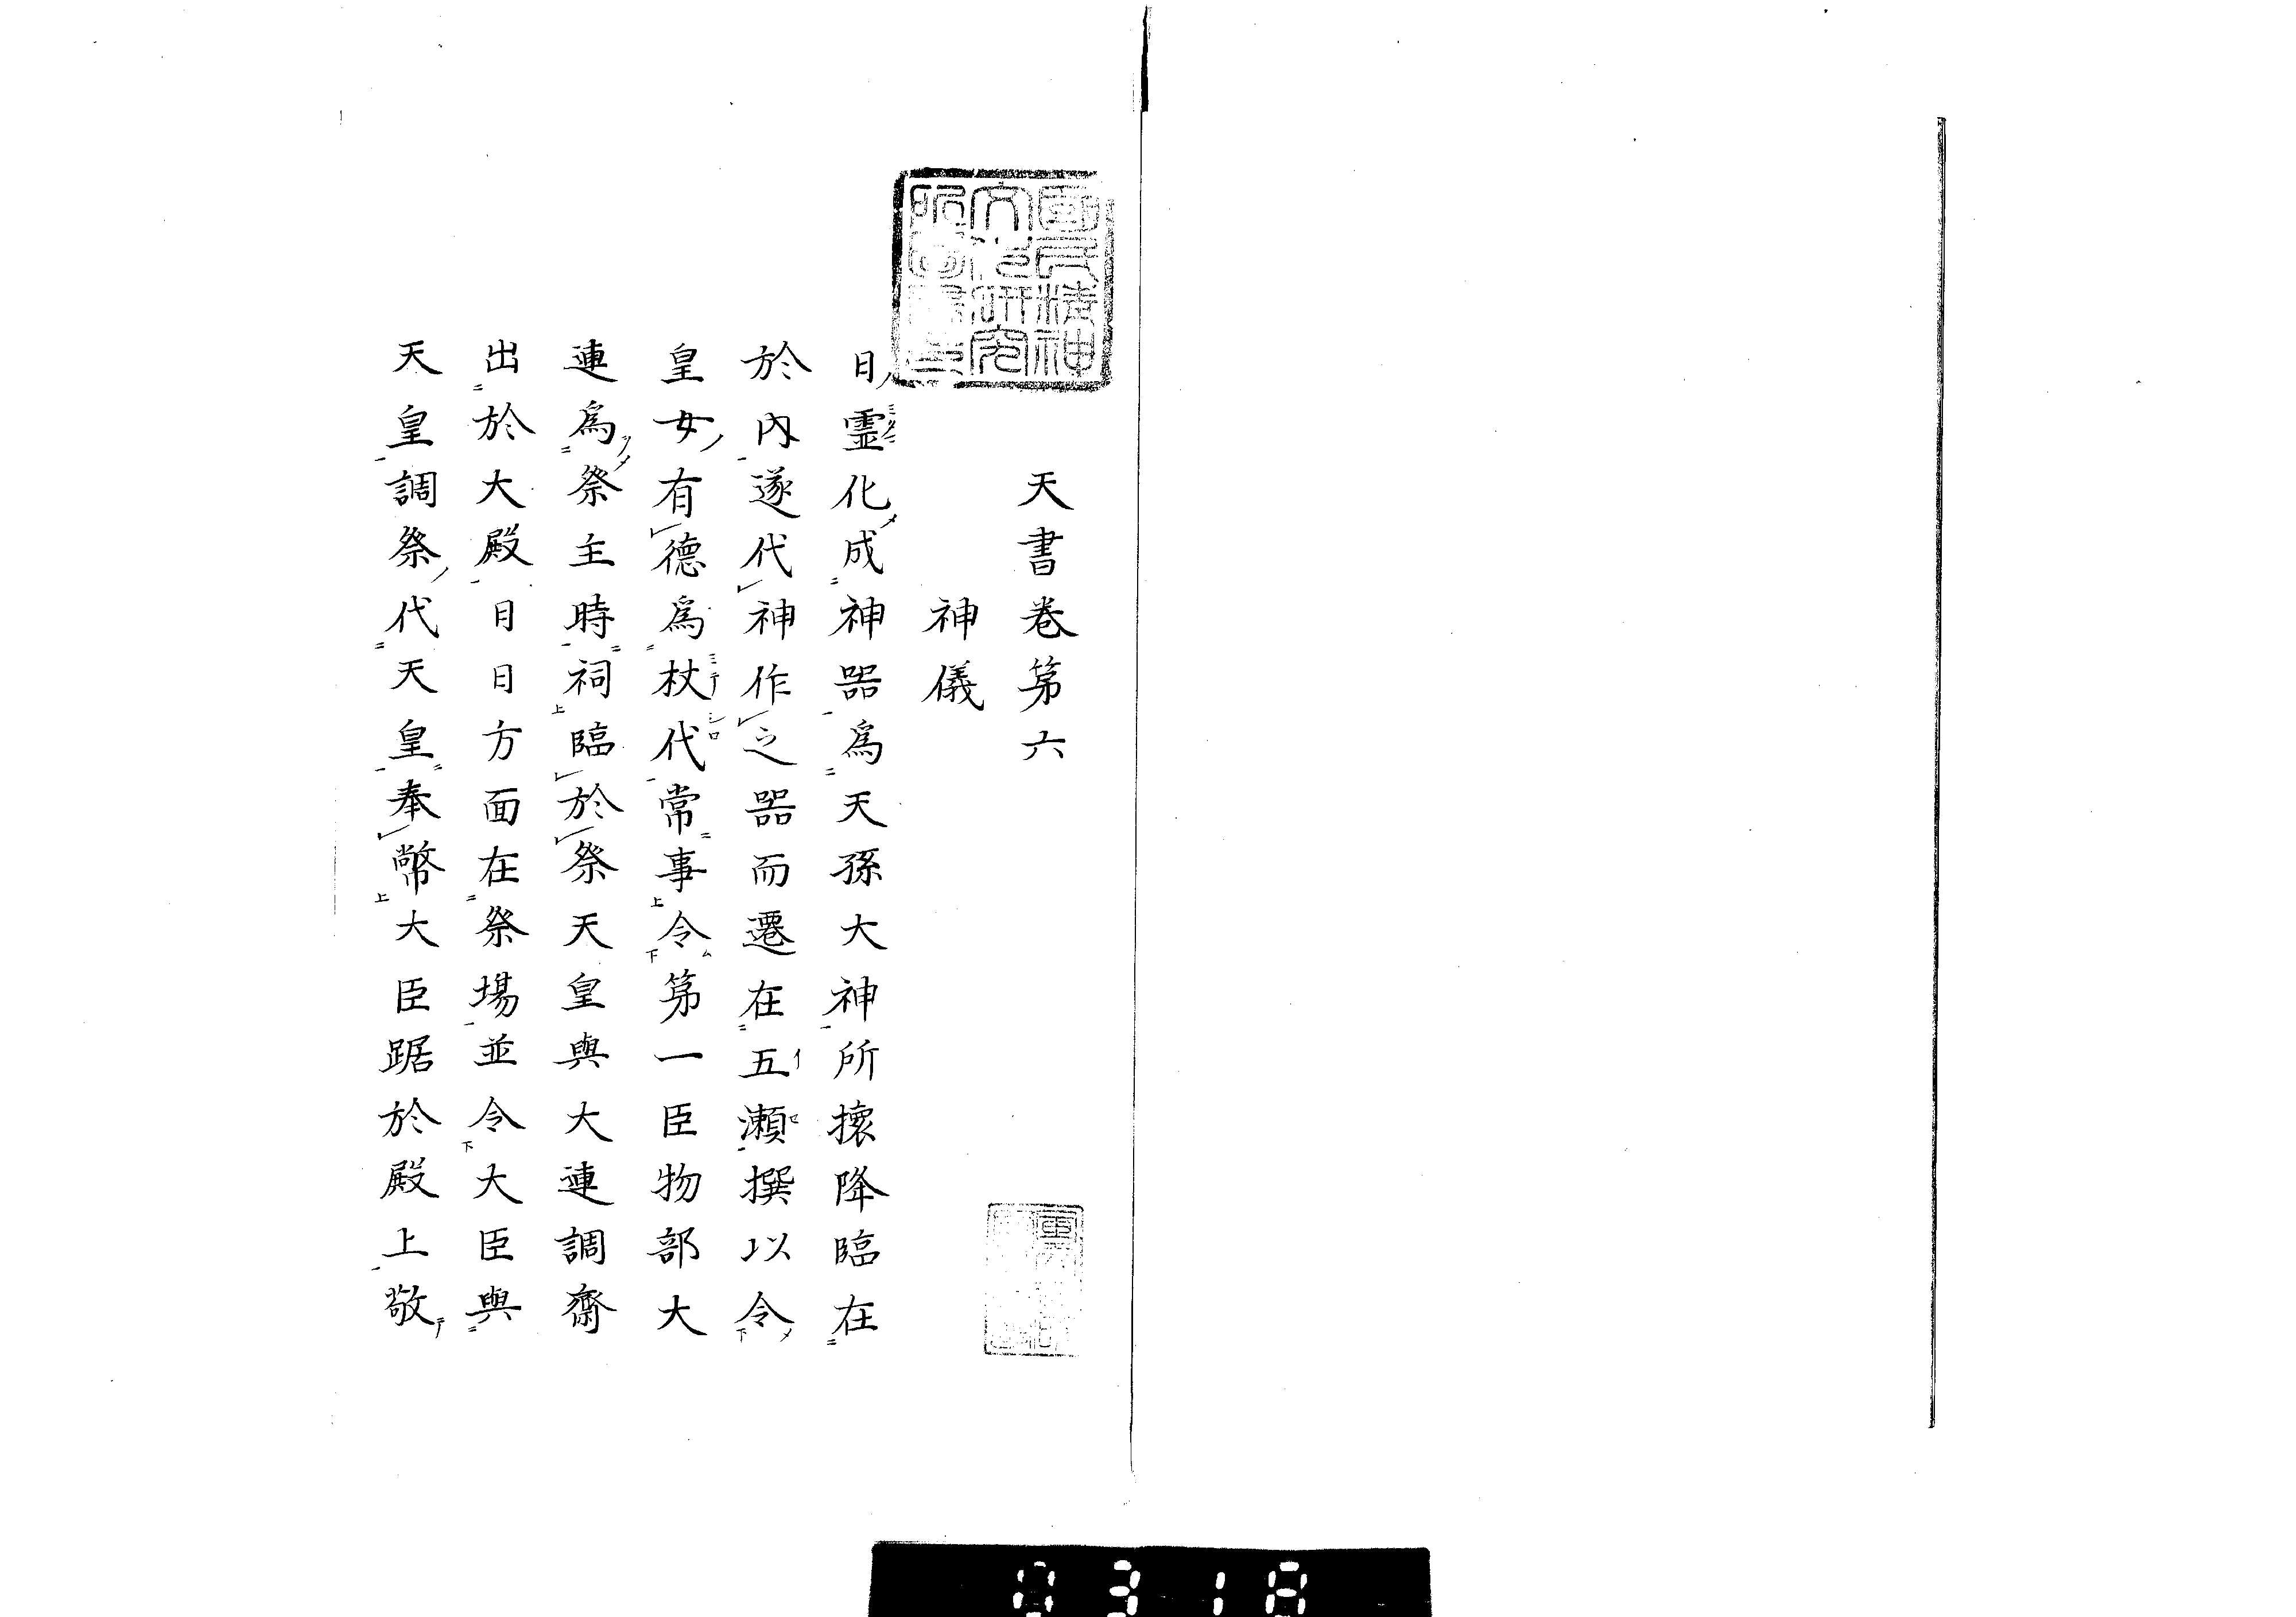 天書卷第六
神儀
日靈化成神器爲天孫大神所攘降臨在
於內遂代神作之器而遷在五瀨撰以令
皇女有德爲杖代常事令第一臣物部大
連爲祭主時祠臨於祭天皇與大連調齋
出於大殿日日方面在祭場並令大臣與
天皇調祭代天皇奉幣大臣踞於殿上敬
國民精神
文化研究